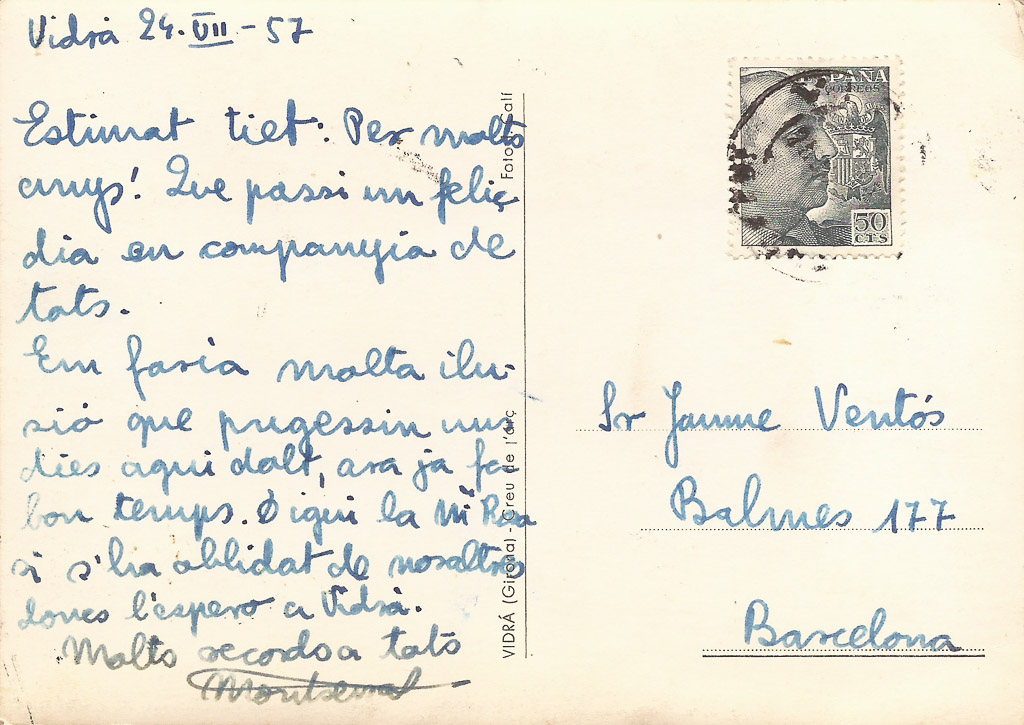 Vidrà 24-VII-57
Estimat tiet: Per molts
anys! Que passi un feliç
dia en companyia de
tots.
Em faria molta ilu-
sió que pugessin uns
dies aqui dalt, ara ja fa
bon temps. Digui la Mª Rosa
si s'ha oblidat de nosaltres
doncs l'espero a Vidrà.
Molts records a tots
Montserrat
VIDRÁ (Girona) - Creu de l'arç
Foto Calí
ESPAÑA
CORREOS
50
CTS
Sr Jaume Ventós
Balmes 177
Barcelona